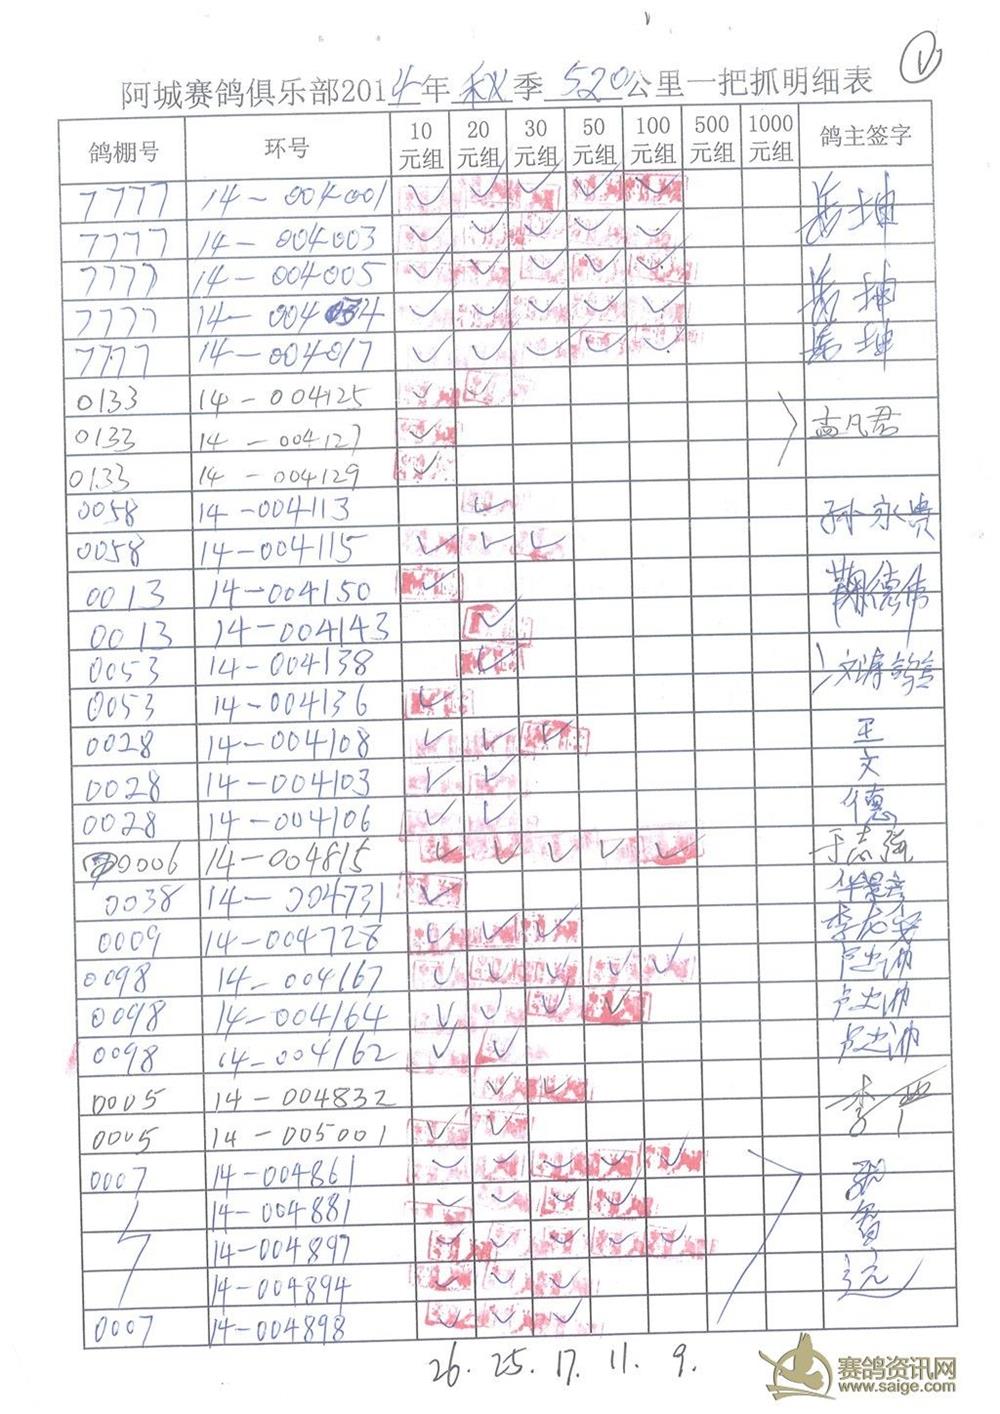 阿城赛鸽俱乐部2014年 秋 季 520 公里一把抓明细表
鸽棚号 环号 10元组 20元组 30元组 50元组 100元组 500元组 1000元组 鸽主签字
7777 14-004001 ✓ ✓ ✓ ✓ ✓
7777 14-004003 ✓ ✓ ✓ ✓ ✓
7777 14-004005 ✓ ✓ ✓ ✓ ✓
7777 ✓ ✓ ✓ ✓ ✓
7777 14-004017 ✓ ✓ ✓ ✓ ✓
0133 14-004125 ✓ ✓
0133 14-004127 ✓ 孟凡君
0133 14-004129 ✓
0058 14-004113 ✓ 孙永贵
0058 14-004115 ✓ ✓ ✓
0013 14-004150 ✓ 德伟
0013 14-004143 ✓
0053 14-004138 ✓
0053 14-004136 ✓
0028 14-004108 ✓ ✓ ✓ 王
0028 14-004103 ✓ ✓ 文
0028 14-004106 ✓ ✓ 德
0006 14-004815 ✓ ✓ ✓ ✓ ✓ 于志强
0038 14-004731 ✓
0009 14-004728 ✓ ✓ ✓
0098 14-004167 ✓ ✓ ✓ ✓ ✓
0098 14-004164 ✓ ✓ ✓ ✓
0098 14-004162 ✓ ✓
0005 14-004832 ✓ ✓ 李严
0005 14-005001 ✓ ✓
0007 14-004861 ✓ ✓ ✓ ✓ ✓
14-004881 ✓ ✓ ✓ ✓
14-004897 ✓ ✓ ✓ ✓ ✓
14-004894 ✓ ✓ ✓
0007 14-004898 ✓ ✓ ✓
26. 25. 17. 11. 9.
赛鸽资讯网
www.saige.com